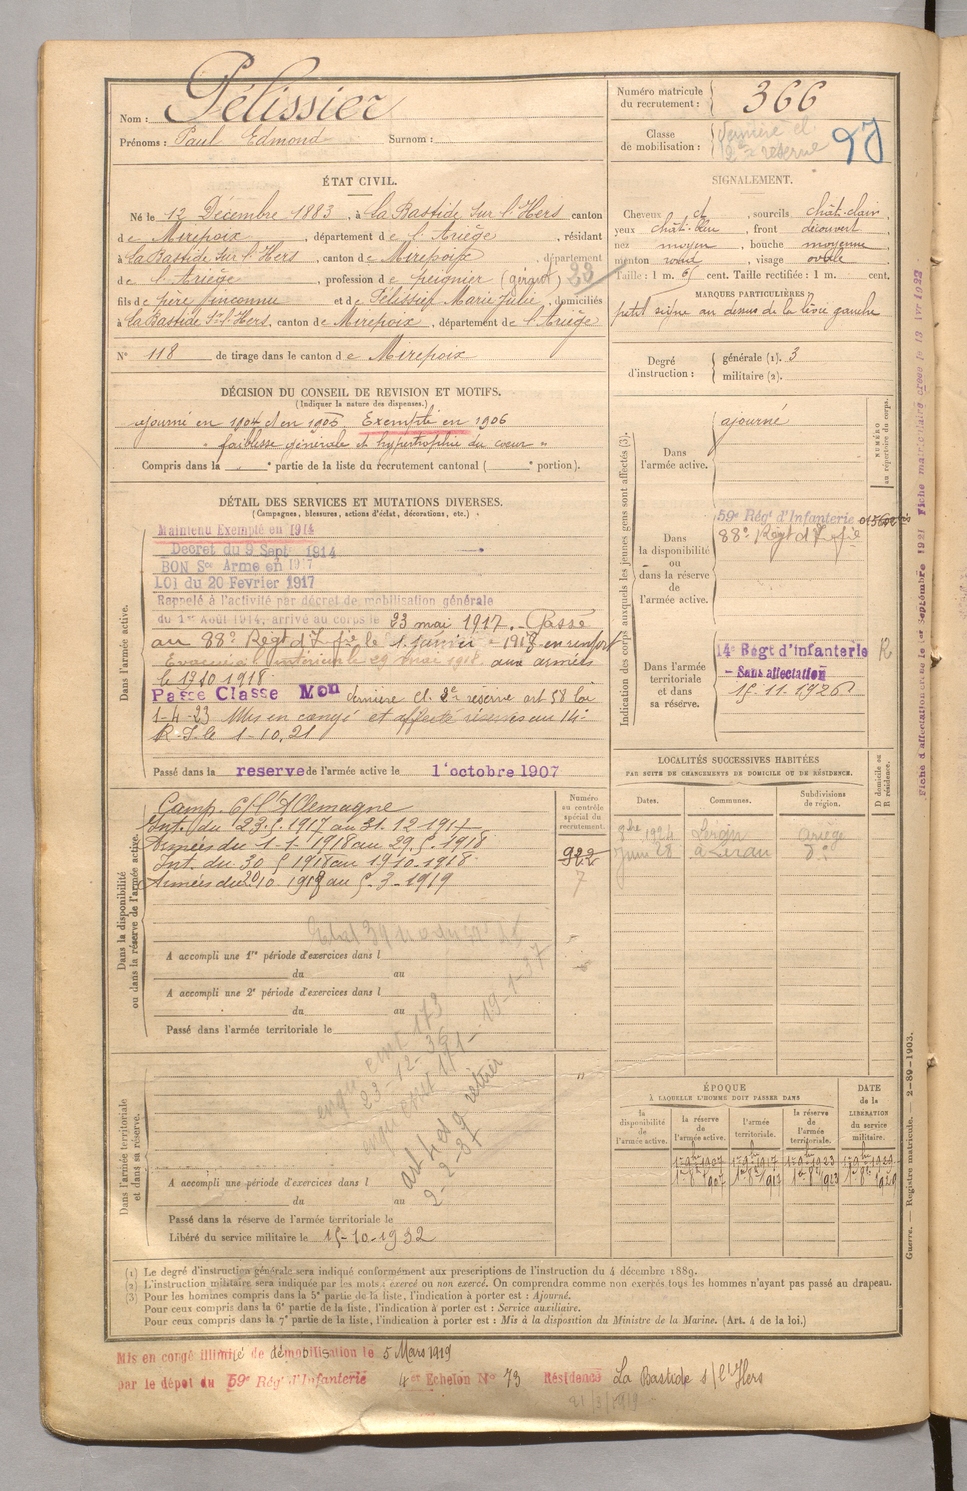 Nom : Pélissier
Prénoms : Paul Edmond Surnom :
ÉTAT CIVIL.
Né le 12 Décembre 1883, à La Bastide sur l'Hers canton
de Mirepoix, département de l'Ariège, résidant
à La Bastide sur l'Hers, canton de Mirepoix, département
de l'Ariège, profession de peignier (giroux) 33
fils de père inconnu et de Pélissier Marie Julie, domiciliés
à La Bastide Sr l'Hers, canton de Mirepoix, département de l'Ariège
N° 118 de tirage dans le canton de Mirepoix
DÉCISION DU CONSEIL DE REVISION ET MOTIFS.
(Indiquer la nature des dispenses.)
ajourné en 1904 et en 1905 Exempté en 1906
" faiblesse générale et hypertrophie du cœur "
Compris dans la e partie de la liste du recrutement cantonal ( e portion).
DÉTAIL DES SERVICES ET MUTATIONS DIVERSES.
(Campagnes, blessures, actions d'éclat, décorations, etc.)
Dans l'armée active.
Maintenu Exempté en 1914
Decret du 9 Sept 1914
BON Sce Armé en 1917
LOI du 20 Fevrier 1917
Rappelé à l'activité par décret de mobilisation générale
du 1er Août 1914, arrivé au corps le 23 mai 1917. Passé
au 88e Regt d'Ifie le 1 janvier 1918 en renfort
Evacué intérieur le 29 mai 1918 aux armées
le 1910 1918
Passe Classe Mon dernière cl. 2e réserve art 58 loi
1-4-23 Mis en congé et affecté réserves au 14e
R.I. le 1-10.21
Passé dans la reserve de l'armée active le 1'octobre 1907
Dans la disponibilité
ou dans la réserve de l'armée active.
Camp. C/ l'Allemagne
Int. du 23.5.1917 au 31.12.1917
Armées du 1-1-1918 au 29.5.1918
Int. du 30 5 1918 au 1910.1918.
Armées du 2010.1918 au 5.3-1919
A accompli une 1re période d'exercices dans l
du au
A accompli une 2e période d'exercices dans l
du au
Passé dans l'armée territoriale le
Numéro
au contrôle
spécial du
recrutement.
922
7
Dans l'armée territoriale
et dans sa réserve.
23-12-36
19-1-37
2-2-37
A accompli une période d'exercices dans l
du au
Passé dans la réserve de l'armée territoriale le
Libéré du service militaire le 15-10-1932
Numéro matricule
du recrutement : 366
Classe
de mobilisation : dernière cl.
2e réserve
SIGNALEMENT.
Cheveux ct, sourcils chât-clair,
yeux chât-bleu, front découvert,
nez moyen, bouche moyenne,
menton rond, visage ovale
Taille : 1 m. 65 cent. Taille rectifiée : 1 m. cent.
MARQUES PARTICULIÈRES
petit signe au dessus de la lèvre gauche
Degré
d'instruction :
générale (1). 3
militaire (2).
Indication des corps auxquels les jeunes gens sont affectés (3).
NUMÉRO
au répertoire du corps.
Dans
l'armée active.
ajourné
Dans
la disponibilité
ou
dans la réserve
de
l'armée active.
59e Régt d'Infanterie
88e Régt d'Ifie
Dans l'armée
territoriale
et dans
sa réserve.
14e Régt d'infanterie R
- Sans affectation
15.11.1926
LOCALITÉS SUCCESSIVES HABITÉES
PAR SUITE DE CHANGEMENTS DE DOMICILE OU DE RÉSIDENCE.
Dates. Communes. Subdivisions
de région. D domicile ou
R résidence.
1924 Ariège
Juin 28 à Léran do
ÉPOQUE
À LAQUELLE L'HOMME DOIT PASSER DANS
DATE
de la
LIBÉRATION
du service
militaire.
la
disponibilité
de
l'armée active.
la réserve
de
l'armée active.
l'armée
territoriale.
la réserve
de
l'armée
territoriale.
(1) Le degré d'instruction générale sera indiqué conformément aux prescriptions de l'instruction du 4 décembre 1889.
(2) L'instruction militaire sera indiquée par les mots : exercé ou non exercé. On comprendra comme non exercés tous les hommes n'ayant pas passé au drapeau.
(3) Pour les hommes compris dans la 5e partie de la liste, l'indication à porter est : Ajourné.
Pour ceux compris dans la 6e partie de la liste, l'indication à porter est : Service auxiliaire.
Pour ceux compris dans la 7e partie de la liste, l'indication à porter est : Mis à la disposition du Ministre de la Marine. (Art. 4 de la loi.)
Guerre. — Registre matricule. — 2-89-1903.
Fiche d'affectation créée le 1er Septembre 1921 Fiche matriculaire créée le 13 Avr 1922
Mis en congé illimité de démobilisation le 5 Mars 1919
par le dépôt du 59e Rég' d'Infanterie 4er Echelon No 73 Résidence La Bastide s/ l'Hers
21/3/1919